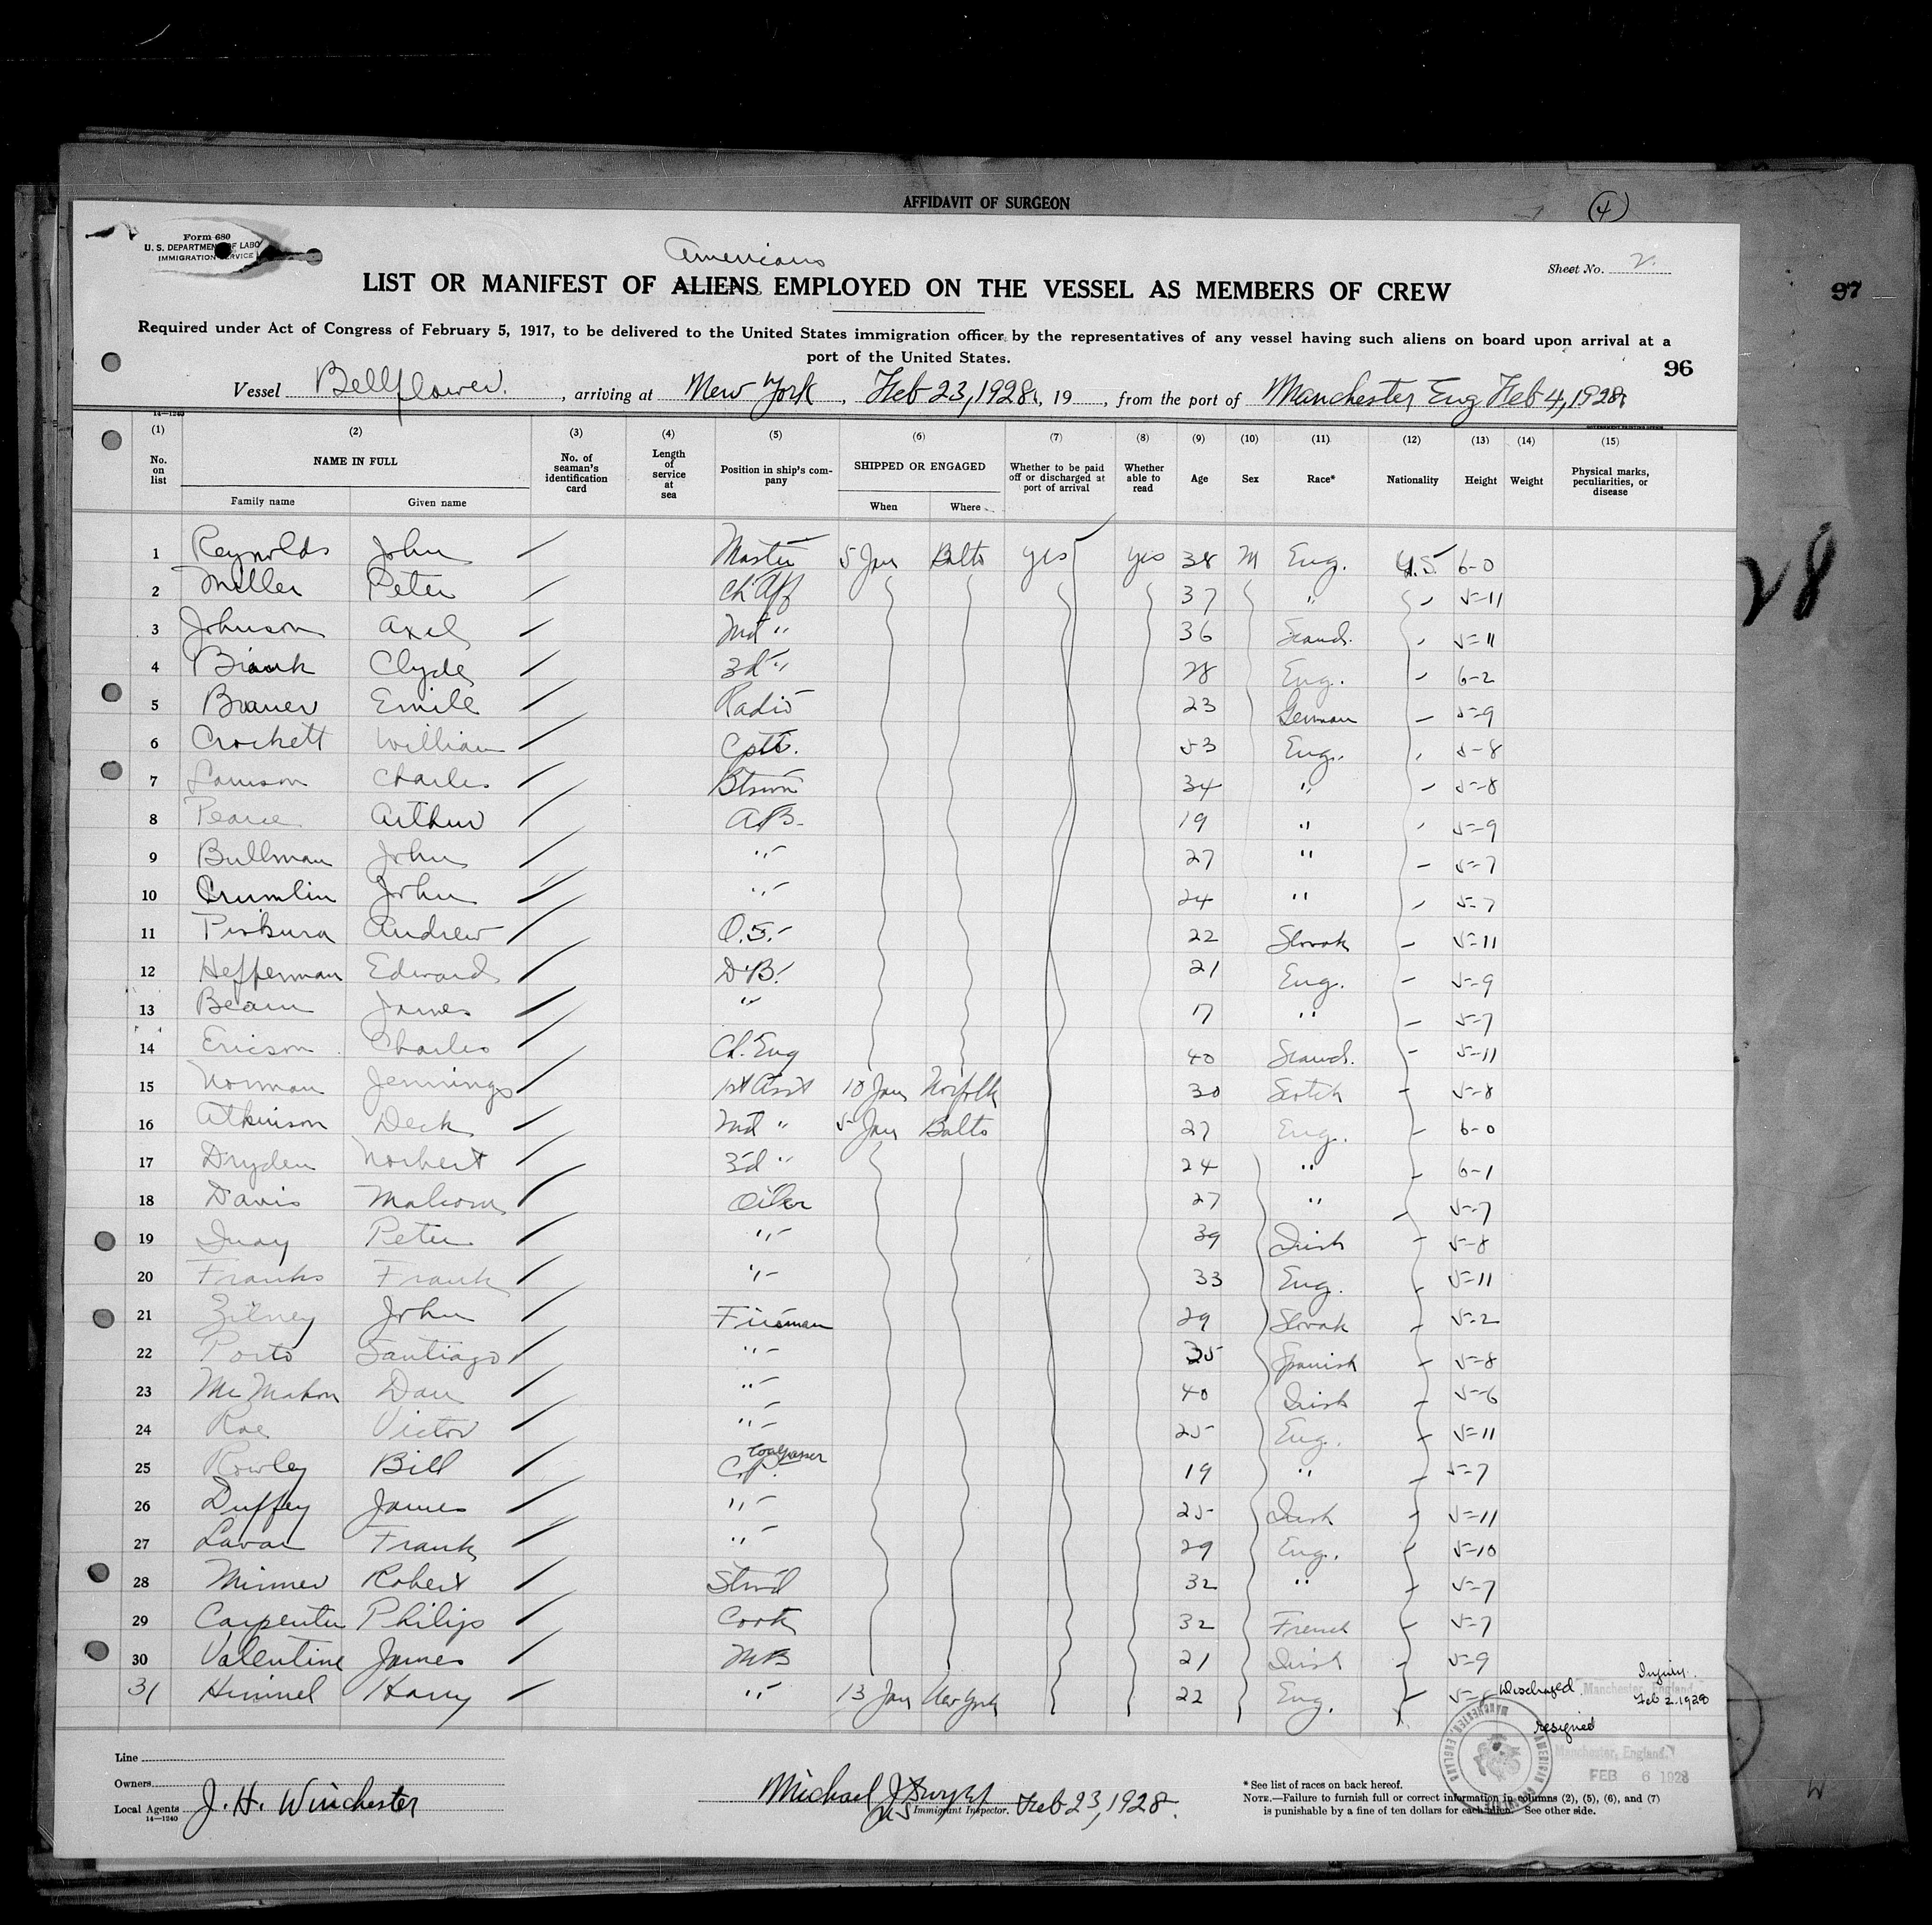 AFFIDAVIT OF SURGEON
(4)
Form 680
U. S. DEPARTMENT OF LABO
IMMIGRATION SERVICE
Americans
Sheet No. 2.
LIST OR MANIFEST OF ALIENS EMPLOYED ON THE VESSEL AS MEMBERS OF CREW
97
Required under Act of Congress of February 5, 1917, to be delivered to the United States immigration officer by the representatives of any vessel having such aliens on board upon arrival at a
port of the United States.
96
Vessel Bellflower. , arriving at New York , Feb 23, 1928, 19 , from the port of Manchester Eng Feb 4, 1928
14—1240
(1) (2) (3) (4) (5) (6) (7) (8) (9) (10) (11) (12) (13) (14) (15)
No. on list NAME IN FULL No. of seaman's identification card Length of service at sea Position in ship's company SHIPPED OR ENGAGED Whether to be paid off or discharged at port of arrival Whether able to read Age Sex Race* Nationality Height Weight Physical marks, peculiarities, or disease
Family name Given name When Where
1 Reynolds John Master 5 Jan Balto yes yes 38 M Eng. U.S. 6-0
2 Miller Peter Ch Off 37 " 5-11
3 Johnson Axel 2nd " 36 Scand. 5-11
4 Clyde 3d " 28 Eng. 6-2
5 Brauer Emile Radio 23 German 5-9
6 Crockett William 53 Eng. 5-8
7 Charles Btswn 34 " 5-8
8 Pearce Arthur A.B. 19 " 5-9
9 Bullman John " 27 " 5-7
10 Crumlin John " 24 " 5-7
11 Piskura Andrew O.S. 22 Slovak 5-11
12 Hefferman Edward D.B. 21 Eng. 5-9
13 Beam James " 17 " 5-7
14 Ericson Charles Ch. Eng 40 Scand. 5-11
15 Norman Jennings 1st Asst 10 Jan Norfolk 30 Scotch 5-8
16 Atkinson Deck 2nd " 5 Jan Balto 27 Eng. 6-0
17 Dryden Norbert 3d " 24 " 6-1
18 Davis Malcom Oiler 27 " 5-7
19 Peter " 39 Irish 5-8
20 Franks Frank " 33 Eng. 5-11
21 Zilney John Fireman 29 Slovak 5-2
22 Porto Santiago " 35 Spanish 5-8
23 McMahon Dan " 40 Irish 5-6
24 Rae Victor " 25 Eng. 5-11
25 Rowley Bill C.P. Coalpasser 19 " 5-7
26 Duffey James " 25 Irish 5-11
27 Frank " 29 Eng. 5-10
28 Minner Robert Stw'd 32 " 5-7
29 Carpenter Philip Cook 32 French 5-7
30 Valentine James MB 21 Irish 5-9
31 Himmel Harry " 13 Jan New York 22 Eng. Discharged Manchester, England Injury. Feb 2. 1928
resigned
Manchester, England.
FEB 6 1928
28
Line
Owners
Local Agents J. H. Winchester
14—1240
Michael J.
U S Immigrant Inspector. Feb 23, 1928.
* See list of races on back hereof.
NOTE.—Failure to furnish full or correct information in columns (2), (5), (6), and (7)
is punishable by a fine of ten dollars for each alien. See other side.